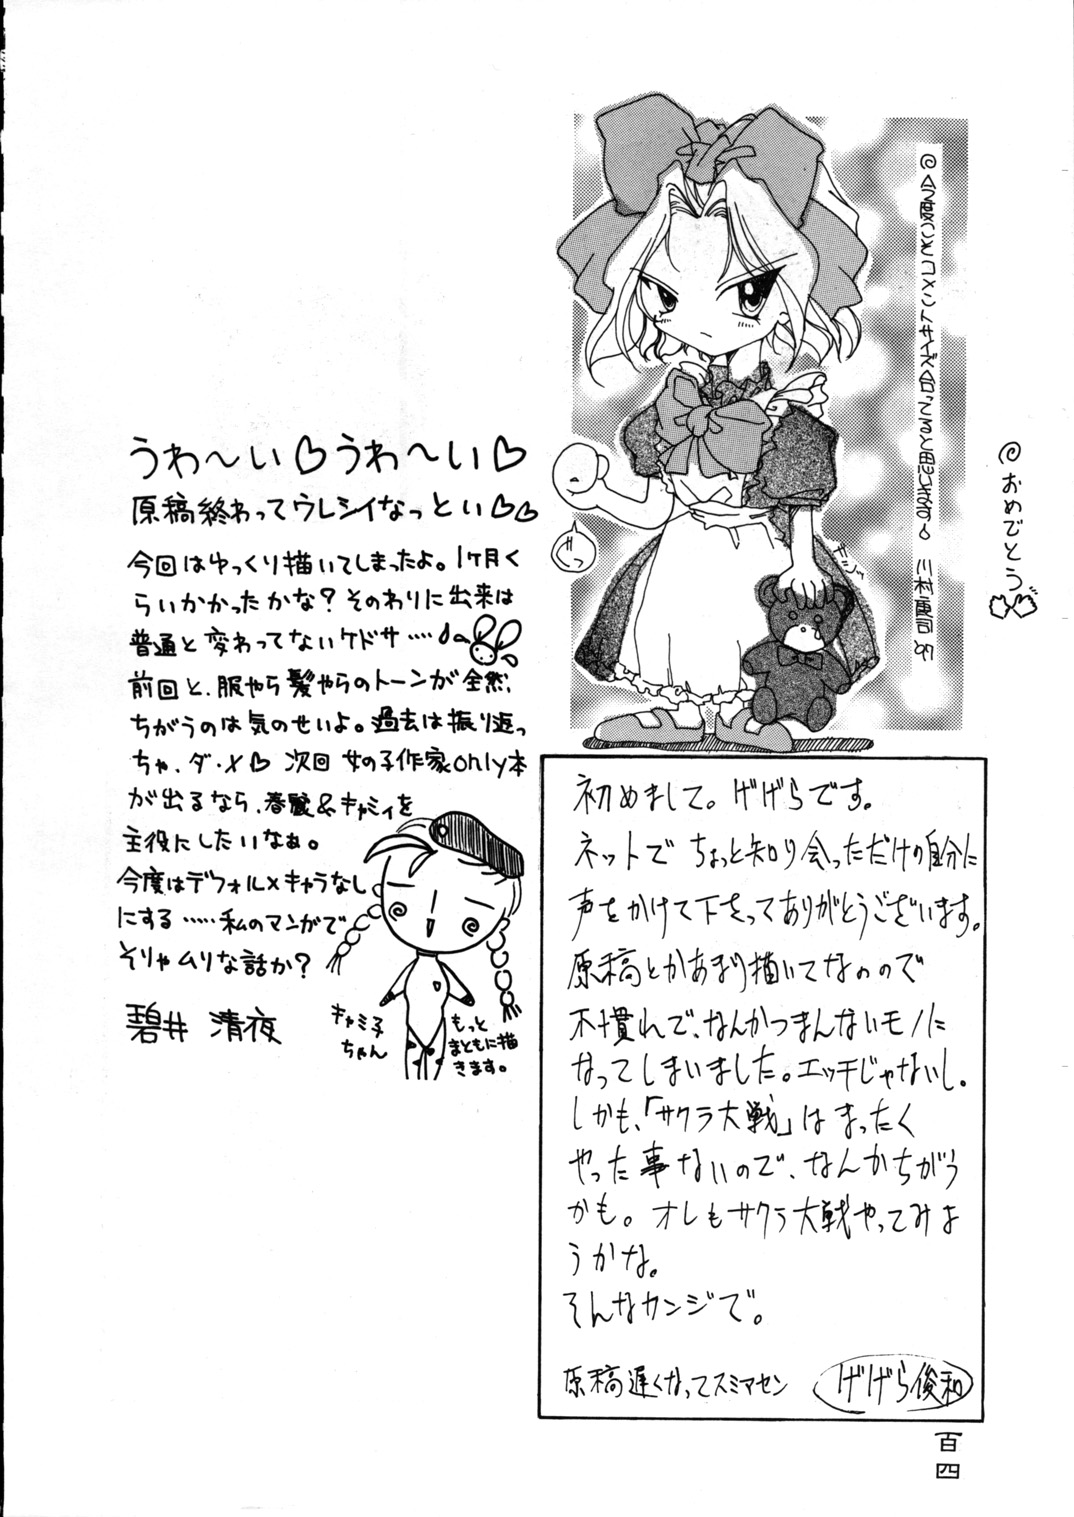 ◎今度こそコメントサイズ合ってると思います。 川村東司 '97
◎おめでとう
どっ
うわ〜い♡うわ〜い♡
原稿終わってウレシイなっとい♡♡
今回はゆっくり描いてしまったよ。1ヶ月く
らいかかったかな?そのわりに出来は
普通と変わってないケドサ……
前回と、服やら髪やらのトーンが全然、
ちがうのは気のせいよ。過去は振り返っ
ちゃ、ダ・メ♡ 次回 女の子作家only本
が出るなら、春麗&キャミィを
主役にしたいなぁ。
今度はデフォルメキャラなし
にする……私のマンガで
そりゃムリな話か?
碧井 清夜
キャミ子
ちゃん
もっと
まともに描
きます。
初めまして。げげらです。
ネットでちょっと知り会っただけの自分に
声をかけて下さってありがとうございます。
原稿とかあまり描いてないので
不慣れで、なんかつまんないモノに
なってしまいました。エッチじゃないし。
しかも、「サクラ大戦」はまったく
やった事ないので、なんかちがう
かも。オレもサクラ大戦やってみよ
うかな。
そんなカンジで。
原稿遅くなってスミマセン
げげら俊和
百四